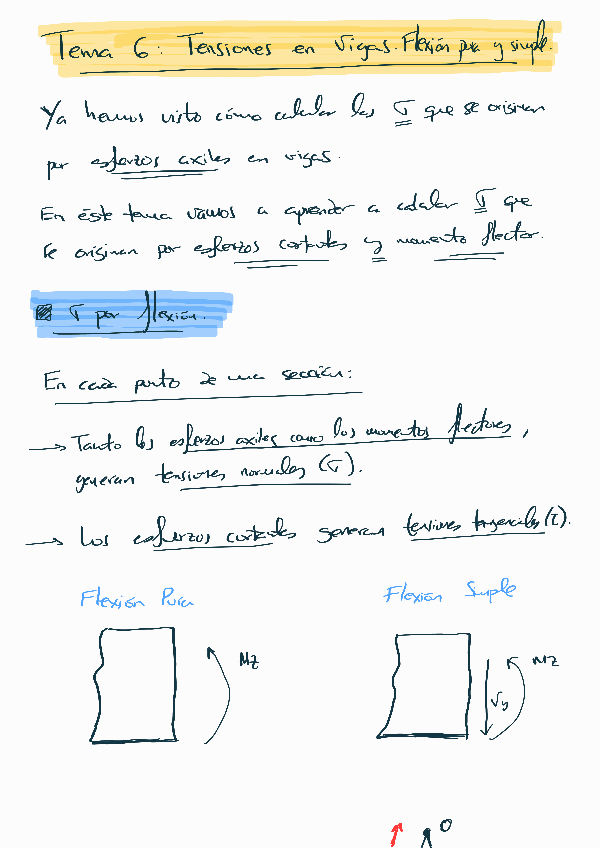 Tema 6: Tensiones en vigas. Flexión pura y simple.
Ya hemos visto cómo calcular las σ que se originan
por esfuerzos axiles en vigas.
En éste tema vamos a aprender a calcular σ que
se originan por esfuerzos cortantes y momento flector.
σ por flexión.
En cada punto de una sección:
→ Tanto los esfuerzos axiles como los momentos flectores,
generan tensiones normales (σ).
→ Los esfuerzos cortantes generan tensiones tangenciales (τ).
Flexión Pura
Flexión Simple
Mz
Mz
Vy
0